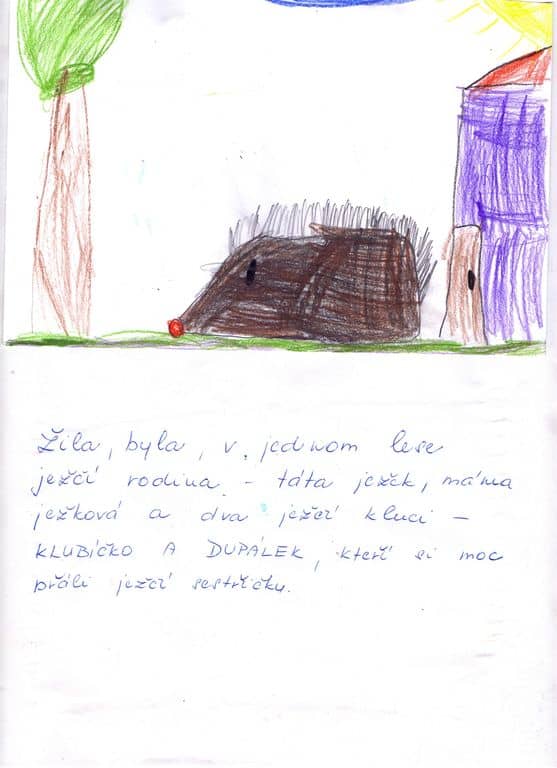 Žila, byla, v jednom lese
ježčí rodina - táta ježek, máma
ježková a dva ježčí kluci -
KLUBÍČKO A DUPÁLEK, kteří si moc
přáli ježčí sestřičku.